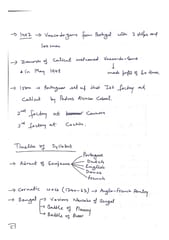 → 1492 → Vascodagama from Portugal with 3 ships and
100 men
→ Zamorin of Calicut welcomed Vascoda-Gama
in May 1498
made profit of 60 times.
→ 1500 → Portuguese set up their 1st factory at
Calicut by Pedro Alvarez Cabral.
2nd factory at Cannore
3rd factory at Cochin.
Timeline of Syllabus
→ Advent of Europeans
Portuguese
Dutch
English
Danes
French
→ Carnatic wars (1744-63) → Anglo-French Rivalry
→ Bengal
→ Various Nawabs of Bengal
→ Battle of Plassey
→ Battle of Buxar